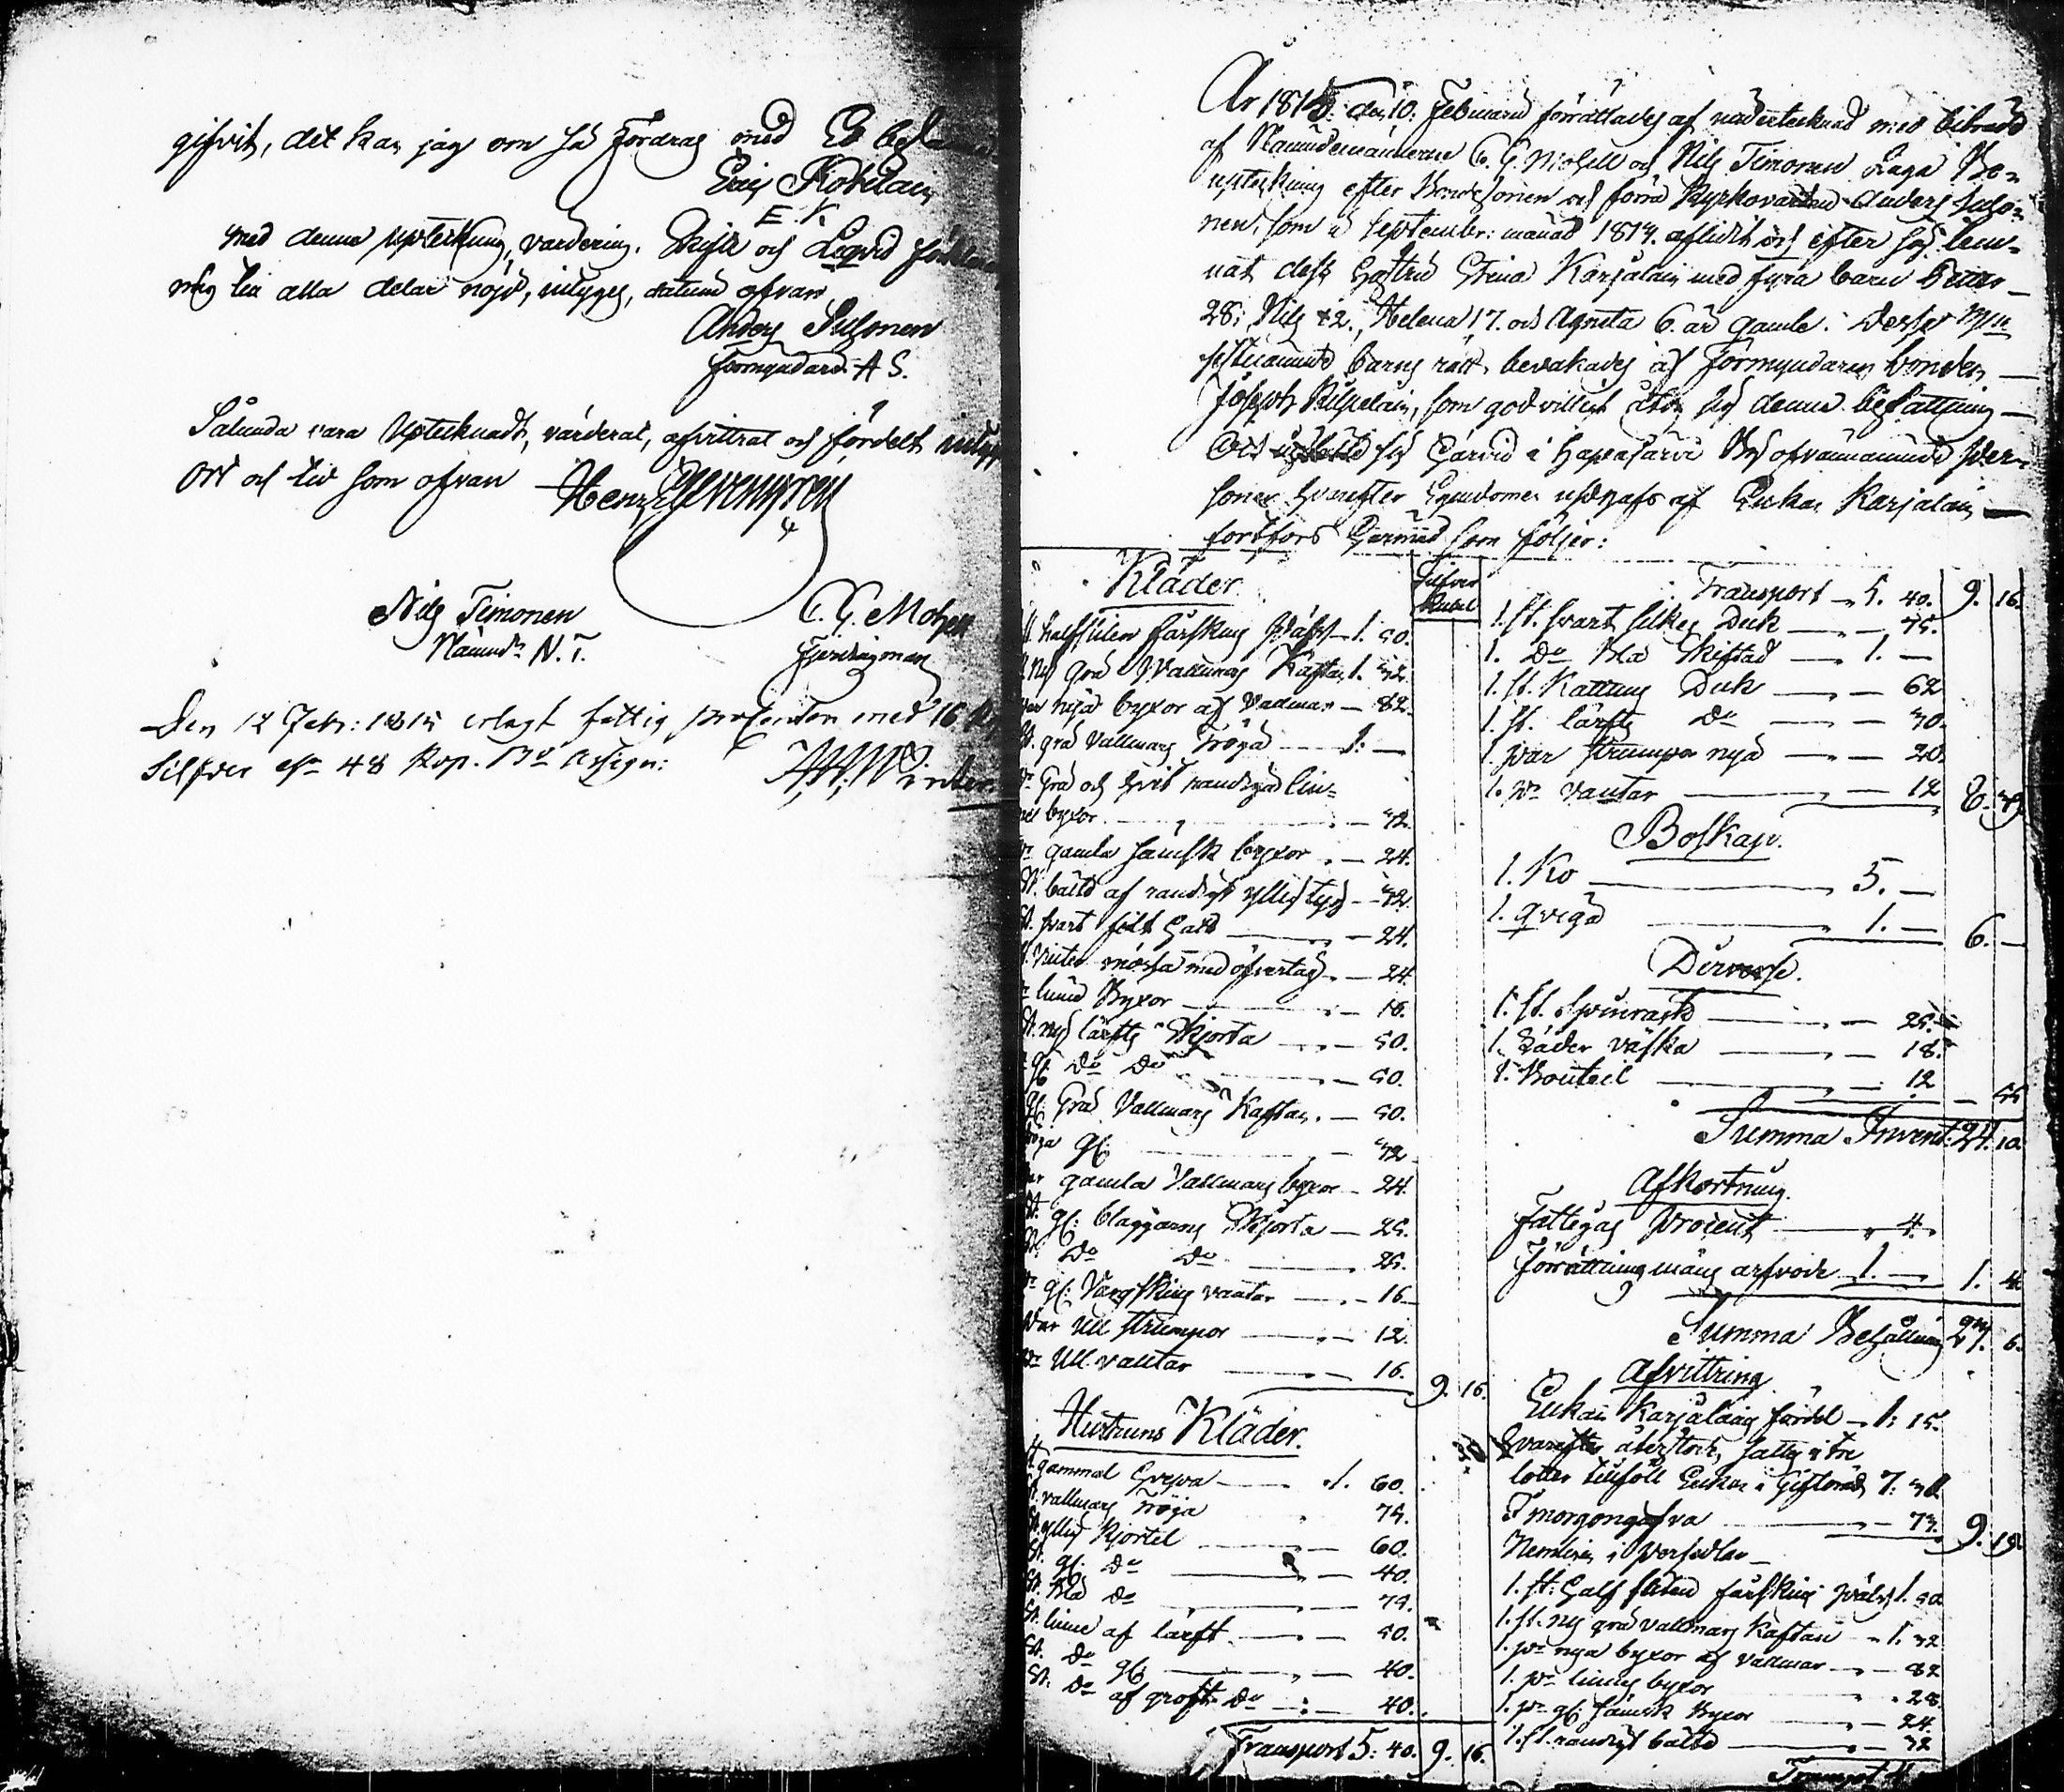 gifvit, det kan jag om så fordras med Ed
Erig Kobilain
E. K.
med denna Upteckning, värdering, Skifte och Liqvid
mig till alla delar nöjd, intygas, datum ofvan
Anders Sulonen
Formyndare. A S.
Sålunda vara Upteknadt, värderat, afvittrat och fördelt
Ort och tid som ofvan Henr
Nils Timonen
Nämnd: N. T.
C. G. Mo
Fjerdingsman
Den 12 Febr: 1815 erlagt fattig procenten med 16
Silfver eller 48 Kop. Bo Assign:
År 1815. den 10. Februarii förrättades af undertecknad med biträde
af Nämndemännerne C. G. och Nils Timonen Laga Bo-
upteckning efter Bonde sonen och förra Kyrkovärden Anders Sulo-
nen, som i September: månad 1814. aflidit och efter sig lem-
nat dess Hustru Stina Karjalain med fyra barn
28: Nils 22., Helena 17. och Agneta 6. år gamle. Desse
barns rätt bevakades af Förmyndaren bonden
Joseph, som godvilligt åtog sig denna befattning
sig härvid i Hapajärvi By ofvannämnde per-
soner hvarefter Egendomen updgafs af Enkan Karjalain
fortfors Härmed som följer:
Kläder.
Silfver
Rubel
halfsliten fårskins Päls 1. 50.
Ny grå Vallmans Kaftan 1. 32.
nya byxor af Vadmar — 82.
St. grå vallmans Tröja 1. —
Grå och hvit randiga lin-
ne byxor — 42.
gamla sämsk byxor — 24.
St. bälte af randigt yllig tyg — 32.
St. svart filt hatt — 24.
Vinter mössa med öfvertåg — 24.
linne Byxor — 16.
St. ny lärfts Skjorta — 50.
gl. Do Do — 50.
gl. Grå Vallmans Kaftan — 50.
Tröja gl: — 42
gamla Vallmans byxor — 24.
St. gl: blaggarns Skjorta — 25.
St. Do Do — 25.
gl: Vargskins vantar — 16
Par Ull strumpor — 12.
Ull vantar — 16.
9. 16.
Hustruns Kläder.
gammal — 1. 60.
vallmans Tröja 75.
St. yllig Kjortel 60.
St. gl: Do — 40.
St. blå Do — 75.
St. linne af lärft — 50.
St. Do gl: — 40.
St. Do af groft Do — 40.
Transport 5: 40. 9. 16.
Transport 5. 40. 9. 16.
1. st. svart silkes Duk — 75.
1. Do blå Skiftad — 1. —
1. st. Kattuns Duk — 62
1. st. lärfts Do — 30.
1. par strumpor nya — 20.
1. pr vantar — 12 8. 39.
Boskap.
1. Ko — 5. —
1. qviga — 1. — 6. —
Diverse.
1. st. Spinnrock — 25.
1. Läder väska — 18.
1. Bouteil — 12 — 55
Summa Invent: 24. 10.
Afkortning.
Fattigas Procent — 4.
Förrättnings mäns arfvode 1. — 1. 4.
Summa Behållning 6.
Afvittring
Enkan Karjalains fördel — 1: 15.
hvarefter återstoden, satt i tre
lotter tillföll Enkan i Giftorätt 7. 30.
I morgongåfva — 73. 9. 19.
Nemligen i Persedlar —
1. st: half sliten fårskins päls 1. 50
1. st. ny grå vallmans Kaftan — 1. 32
1. pr nya byxor af vallmar — 82
1. pr linnes byxor 28
1. pr gl: sämsk Byxor — 24.
1. st. randigt bälte — 32
Transport